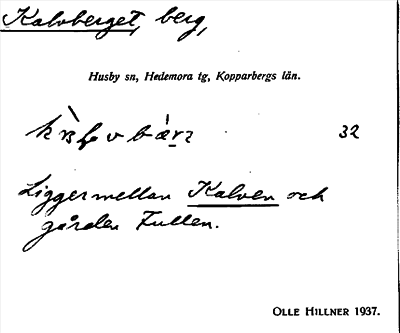 Kalvberget, berg,
Husby sn, Hedemora tg, Kopparbergs län.
32
Ligger mellan Kalven och
gården Fullen.
OLLE HILLNER 1937.